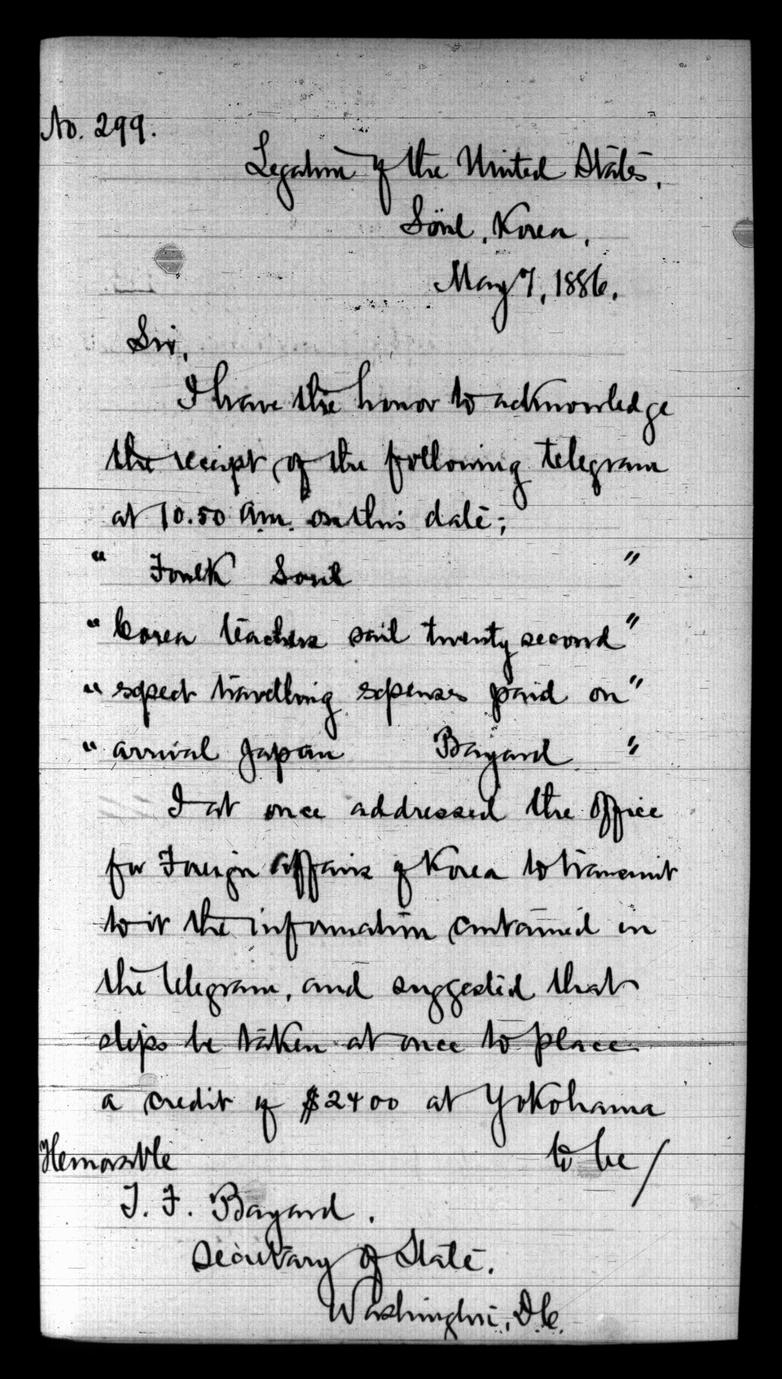 No. 299.
Legation of the United States,
Söul, Korea,
May 7, 1886.
Sir,
I have the honor to acknowledge
the receipt of the following telegram
at 10.50 am. on this date;
" Foulk Soul "
" Corea teachers sail twenty second "
" expect travelling expenses paid on "
" arrival Japan Bayard "
I at once addressed the office
for Foreign Affairs of Korea to transmit
to it the information contained in
the telegram, and suggested that
steps be taken at once to place
a credit of $2400 at Yokohama
Honorable to be /
T. F. Bayard.
Secretary of State.
Washington, D.C.